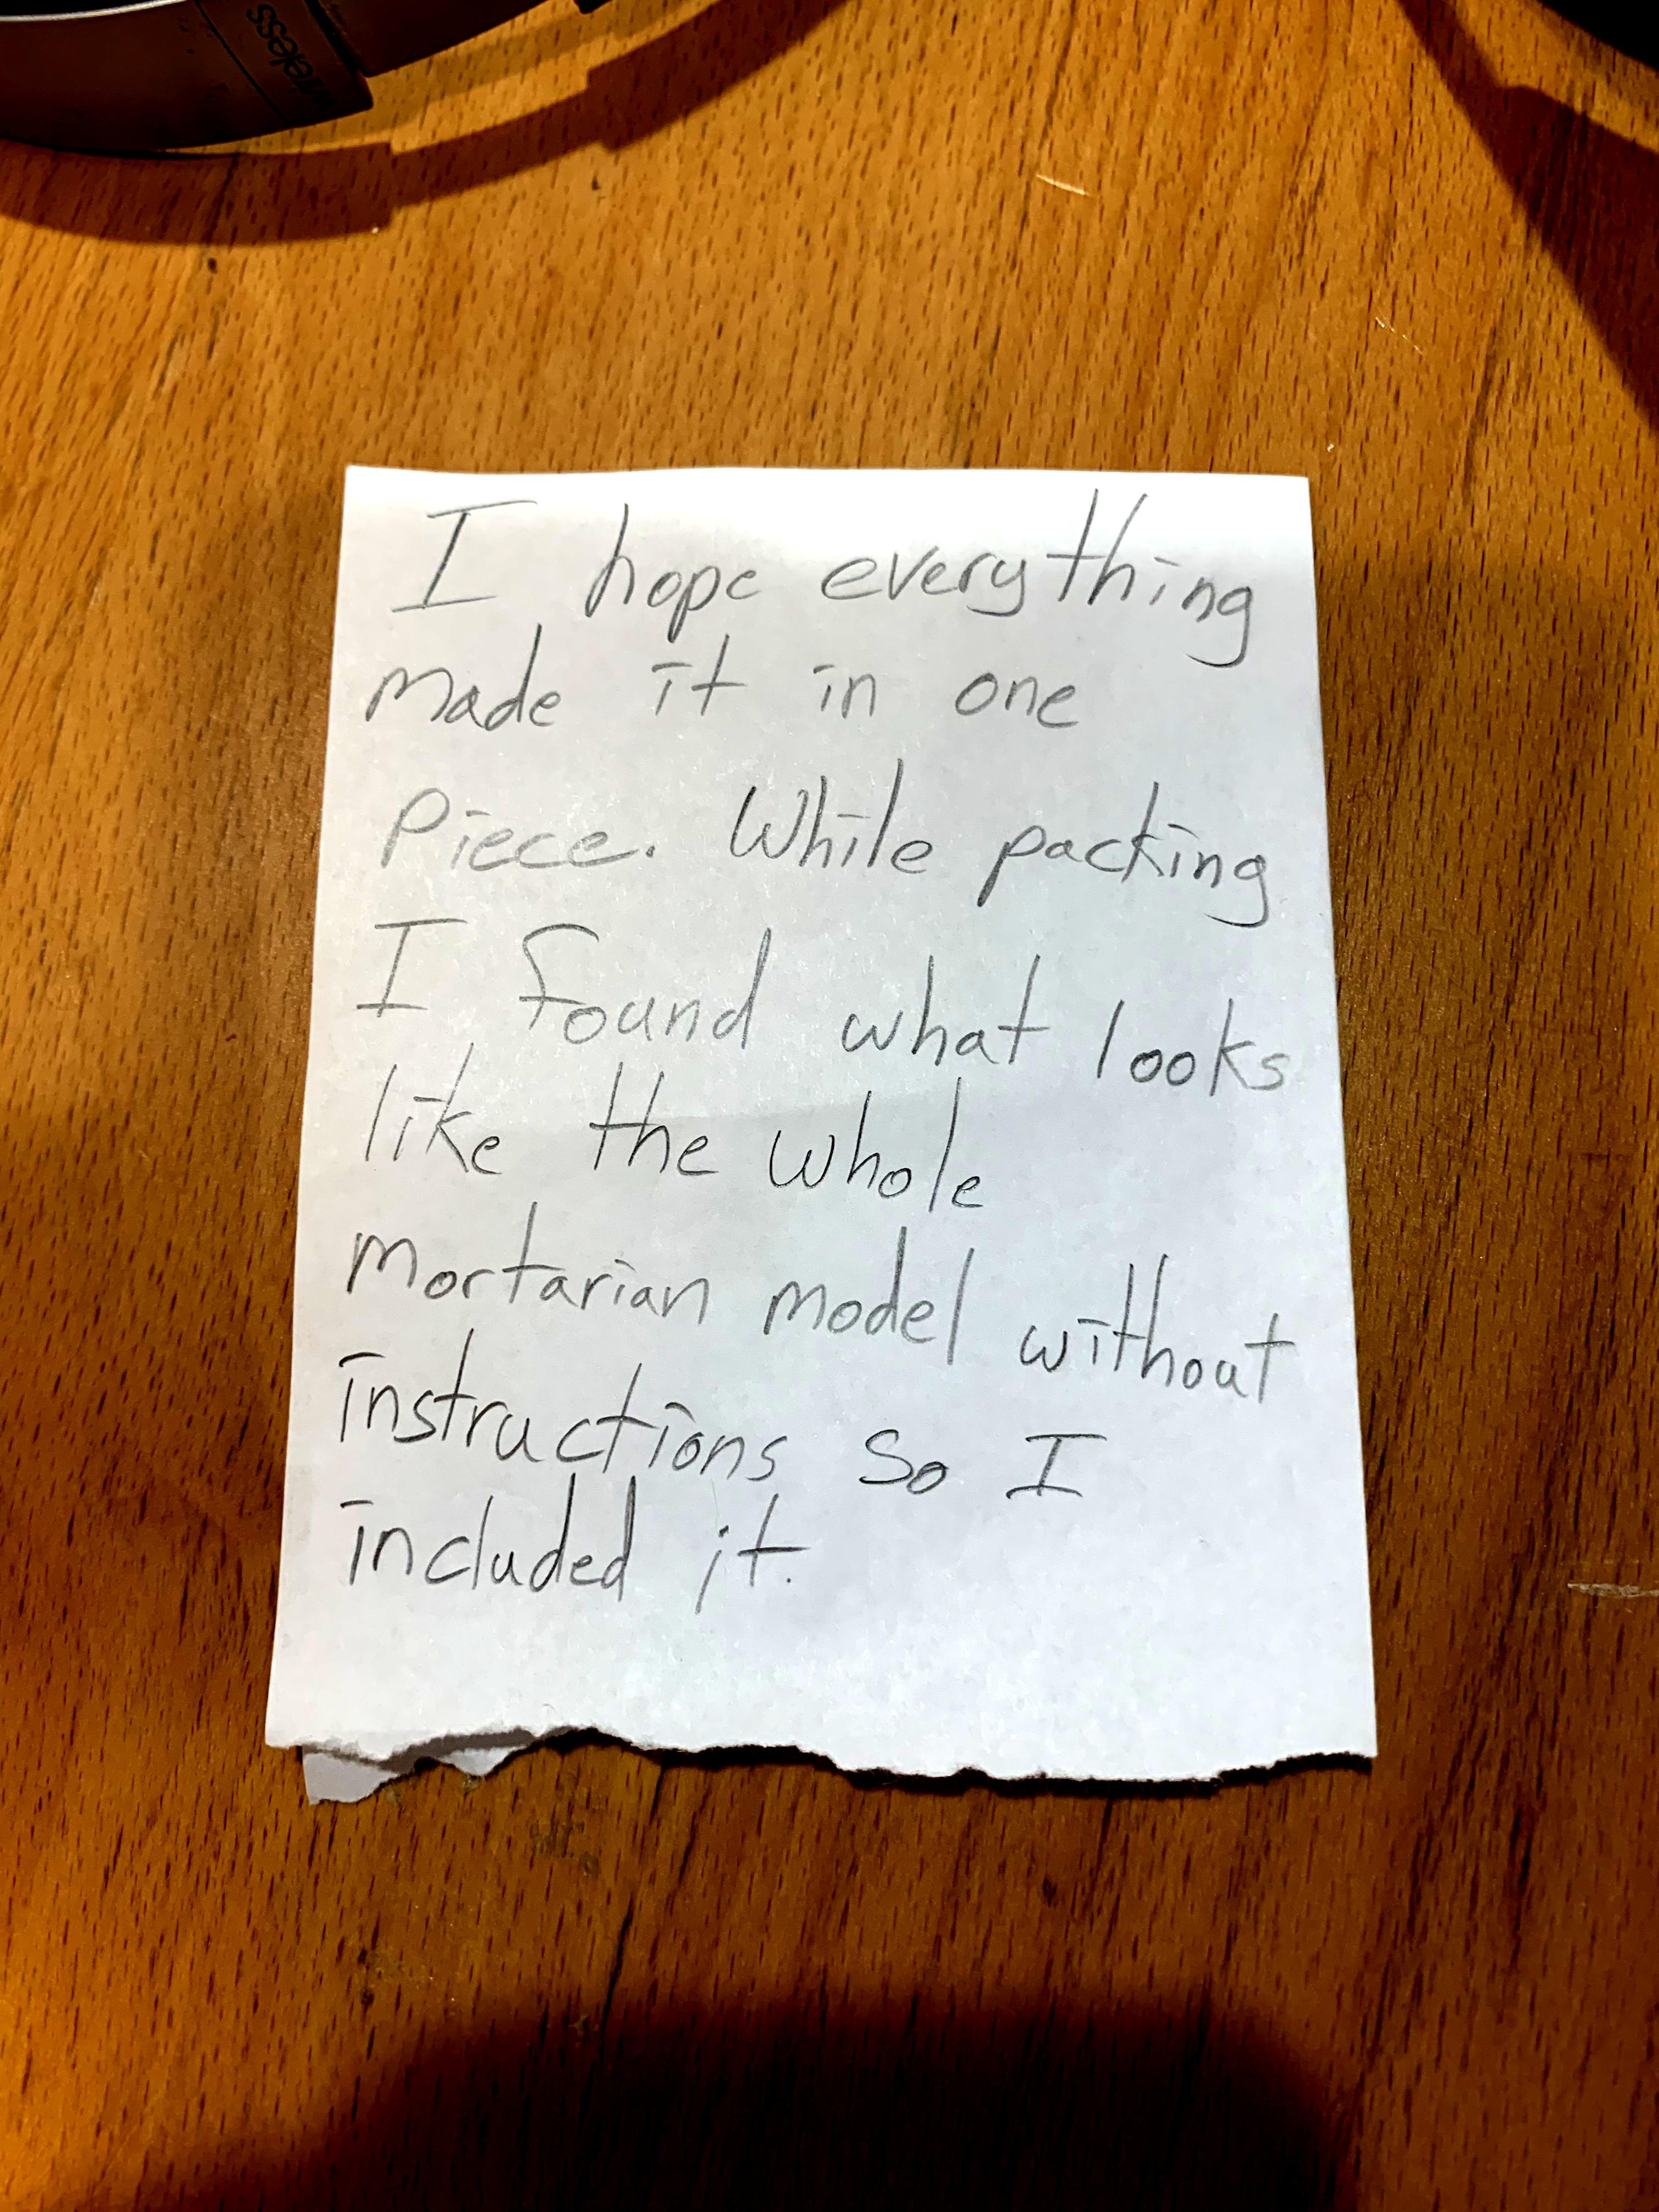 wireless
I hope everything
made it in one
Piece. While packing
I found what looks
like the whole
Mortarian model without
instructions so I
included it.